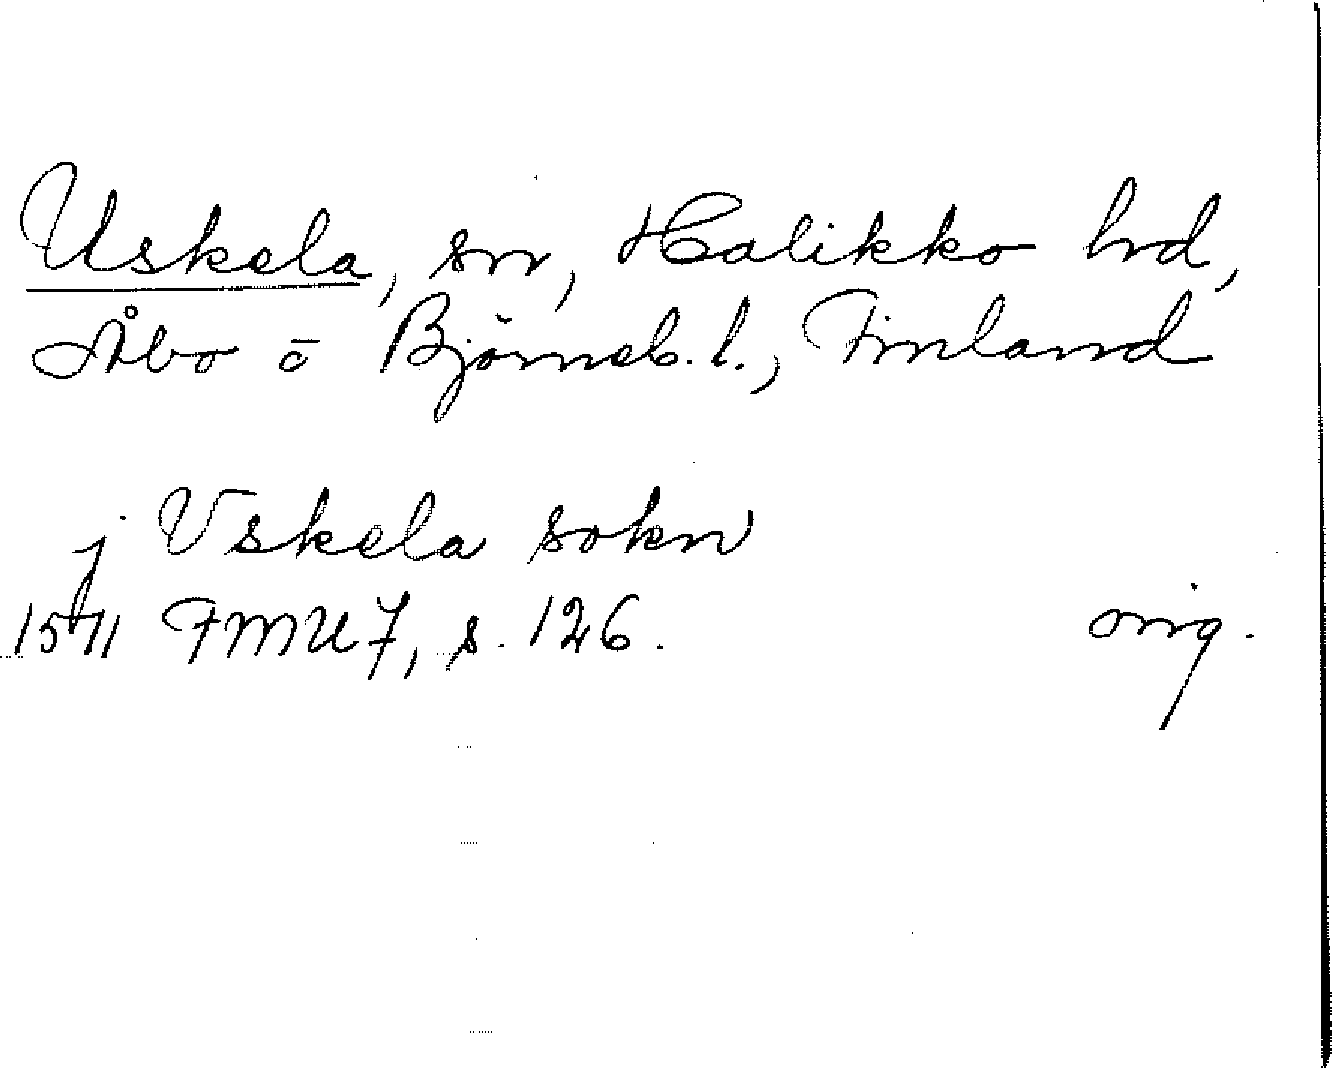 Uskela, sn, Halikko hd,
Åbo o Björneb. l., Finland
j Vskela sokn
1511 FMU 7, s. 126.
orig.